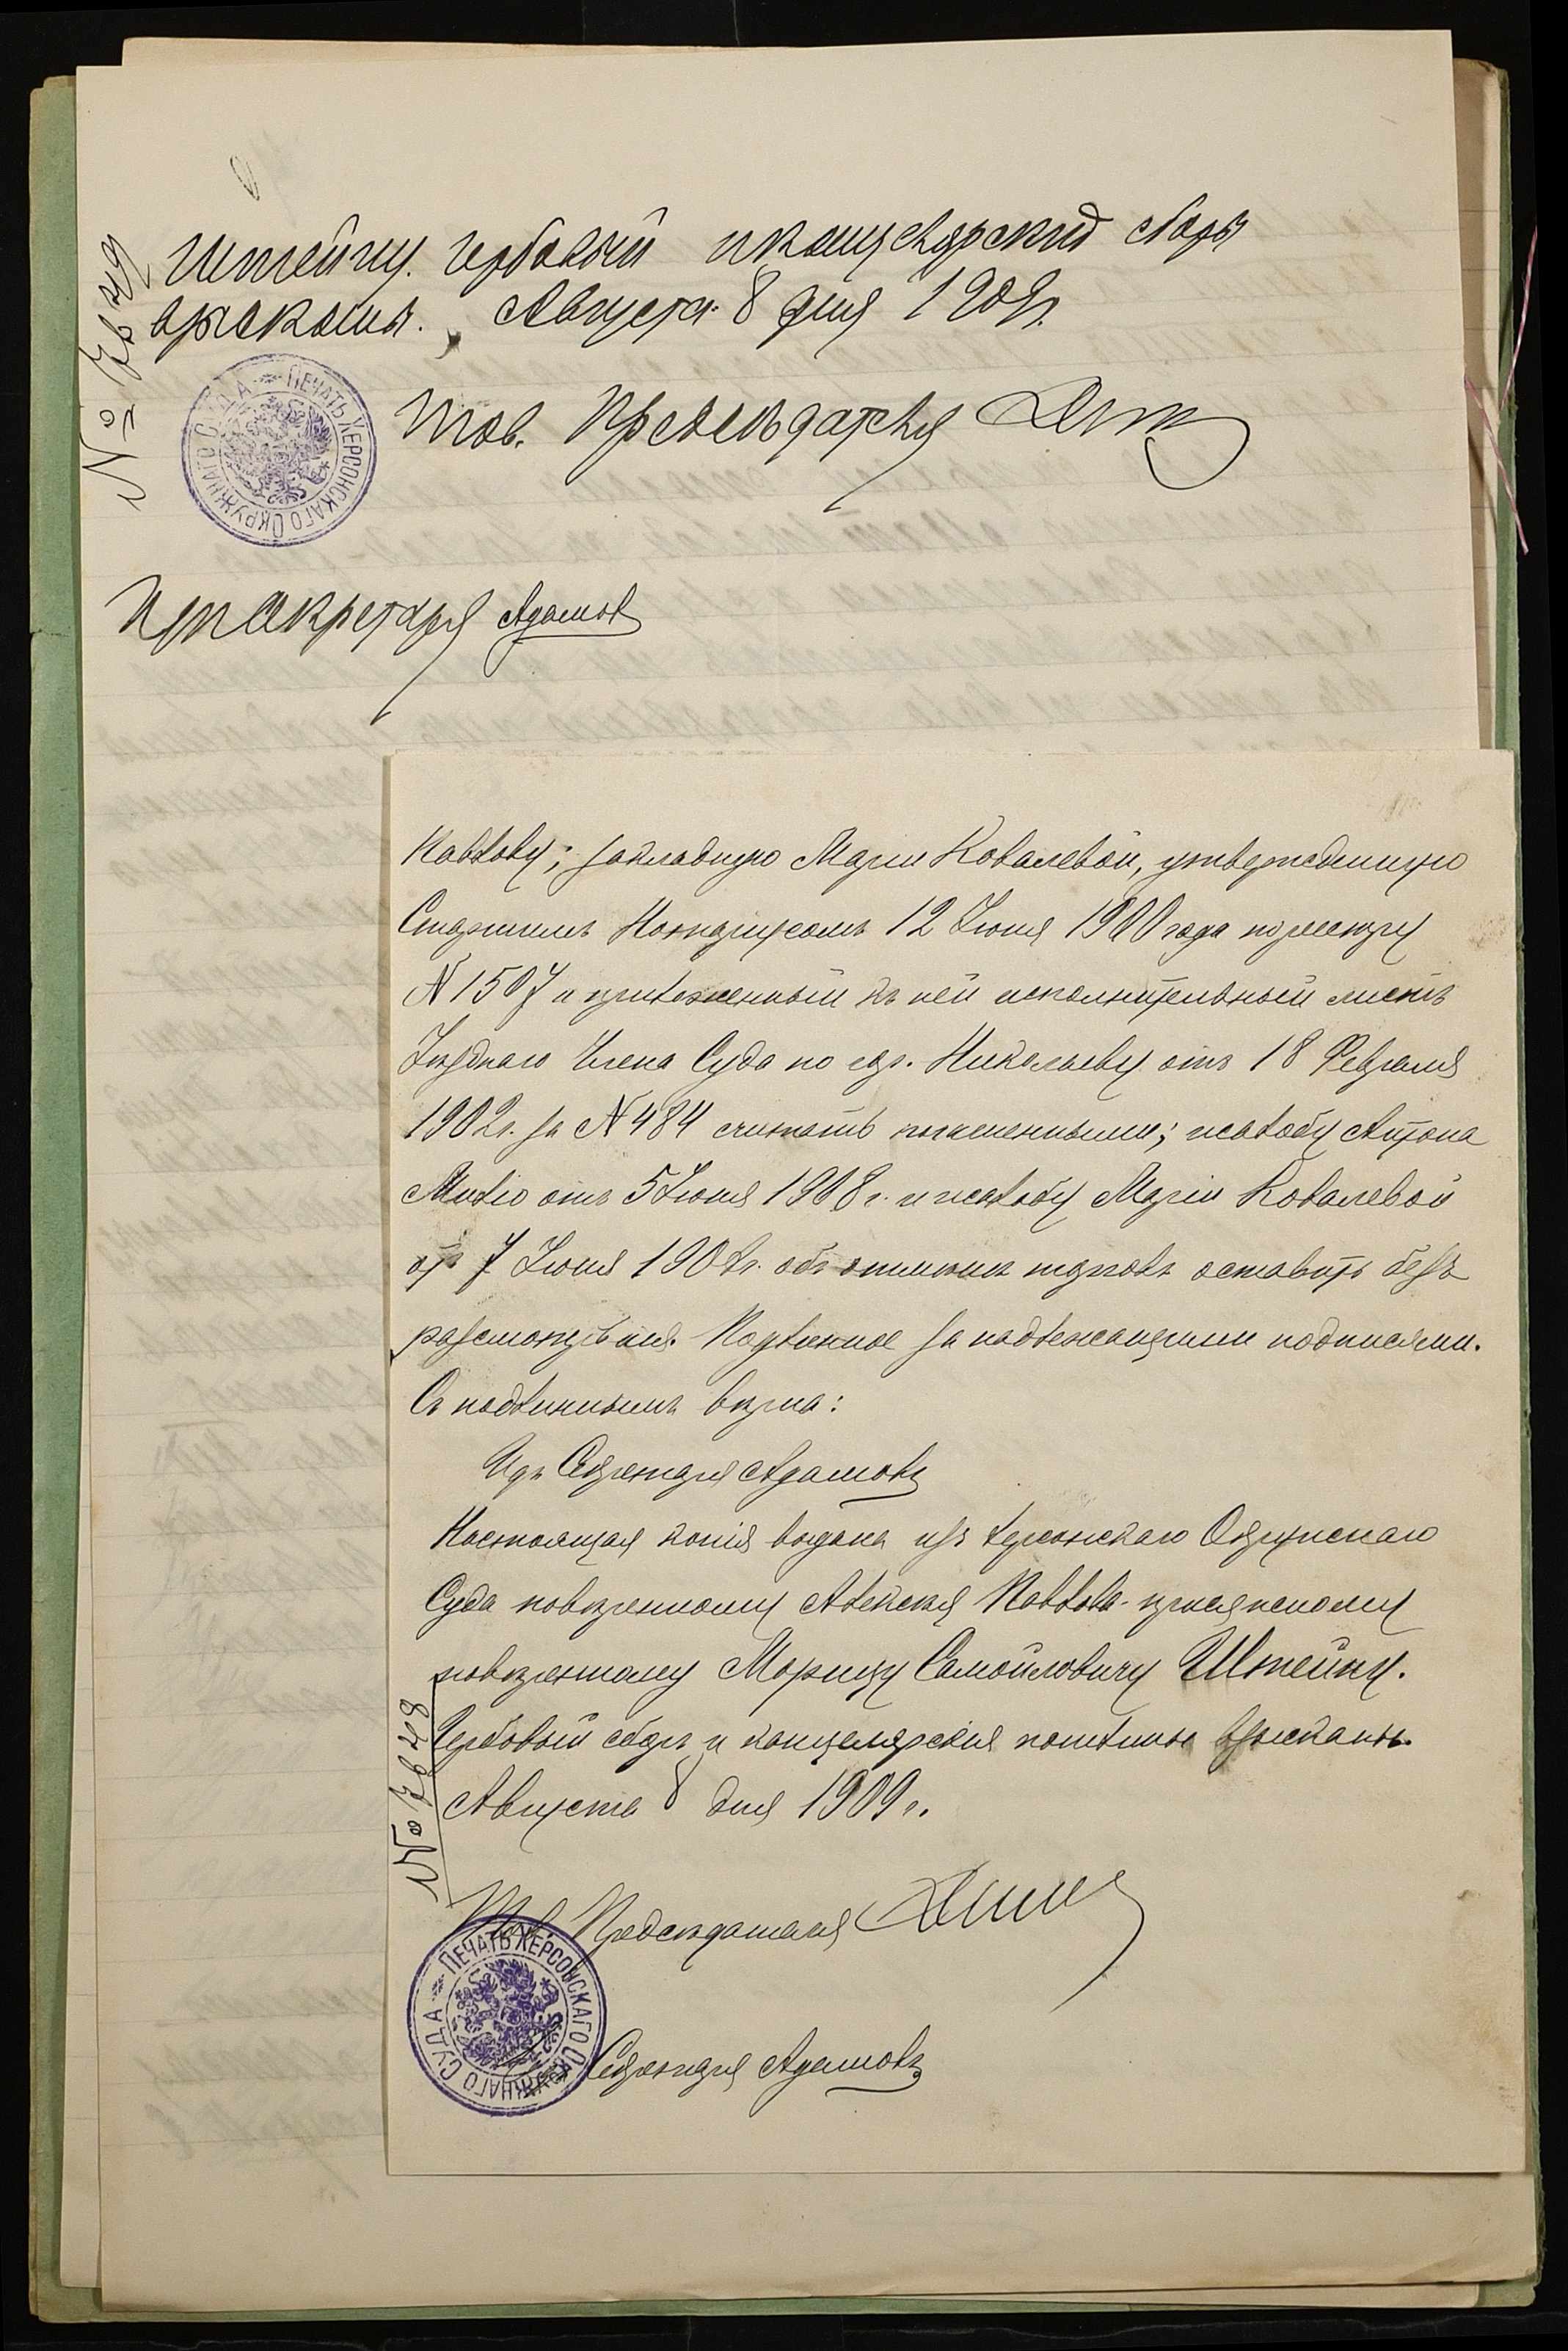 Штейну. Гербовый и канцелярскій сборы
взысканы. Августа 8 дня 1909 г.
№
ПЕЧАТЬ ХЕРСОНСКАГО ОКРУЖНАГО СУДА
Тов. Предсѣдателя
Секретаря Адамовъ
Павлову; закладную Маріи Ковалевой, утвержденную
Старшимъ Нотаріусомъ 12 Іюня 1900 года по реестру
N 1507 и приложенный къ ней исполнительный листъ
Уѣзднаго Члена Суда по гор. Николаеву отъ 18 Февраля
1902 г. за N 484 считать погашенными; жалобу Антона
отъ 5 Іюня 1908 г. и жалобу Маріи Ковалевой
отъ 7 Іюня 1908 г. объ отмѣнѣ торговъ оставить безъ
разсмотрѣнія. Подлинное за надлежащими подписями.
Съ подлиннымъ вѣрно:
Секретаря Адамовъ
Настоящая копія выдана изъ Херсонскаго Окружнаго
Суда повѣренному Алексѣя Павлова присяжному
повѣренному Морицу Самойловичу Штейну.
Гербовый сборъ и канцелярскія пошлины взысканы.
Августа 8 дня 1909 г.
№
Тов. Предсѣдателя
ПЕЧАТЬ ХЕРСОНСКАГО ОКРУЖНАГО СУДА
Секретаря Адамовъ